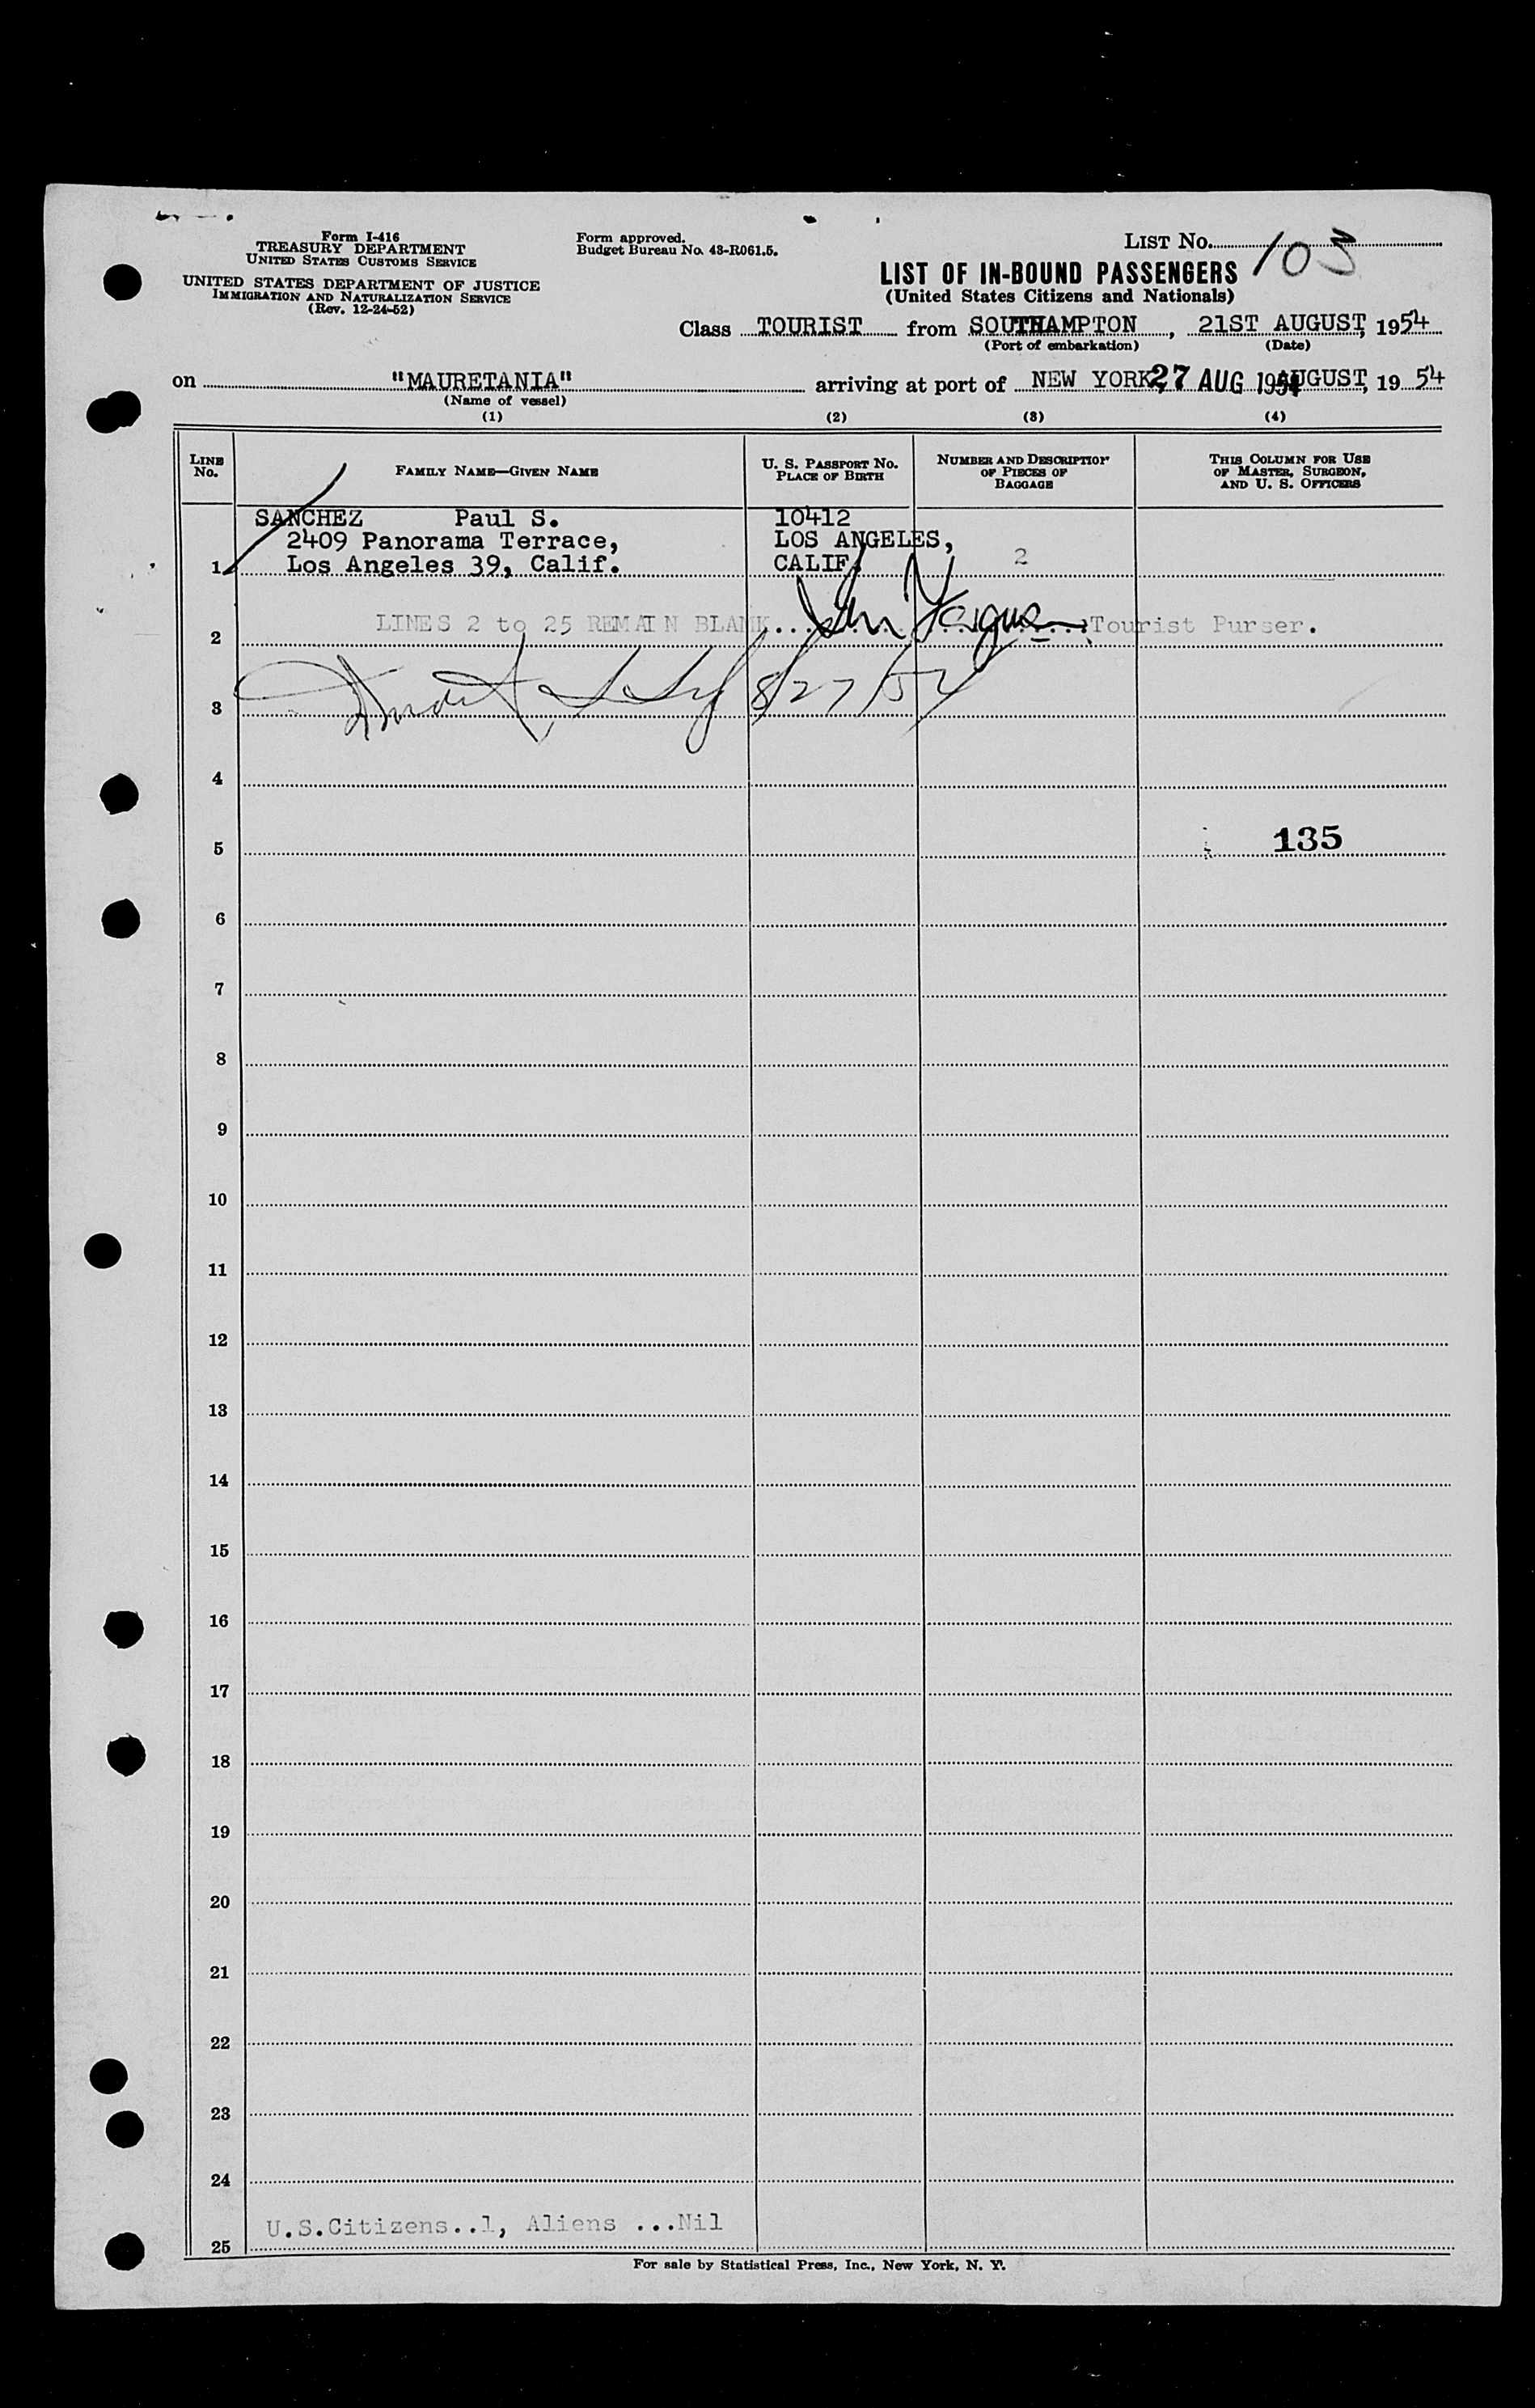 Form I-416
TREASURY DEPARTMENT
UNITED STATES CUSTOMS SERVICE
UNITED STATES DEPARTMENT OF JUSTICE
IMMIGRATION AND NATURALIZATION SERVICE
(Rev. 12-24-52)
Form approved.
Budget Bureau No. 43-R061.5.
LIST No. 103
LIST OF IN-BOUND PASSENGERS
(United States Citizens and Nationals)
Class TOURIST from SOUTHAMPTON, 21ST AUGUST, 1954
(Port of embarkation) (Date)
on "MAURETANIA" arriving at port of NEW YORK, 27 AUG 1954 AUGUST, 19 54
(Name of vessel)
(1) (2) (3) (4)
LINE No. FAMILY NAME—GIVEN NAME U. S. PASSPORT No. PLACE OF BIRTH NUMBER AND DESCRIPTION OF PIECES OF BAGGAGE THIS COLUMN FOR USE OF MASTER, SURGEON, AND U. S. OFFICERS
SANCHEZ Paul S. 10412
2409 Panorama Terrace, LOS ANGELES,
1 Los Angeles 39, Calif. CALIF. 2
2 LINES 2 to 25 REMAIN BLANK Tourist Purser.
3 8/27/54
4
5 135
6
7
8
9
10
11
12
13
14
15
16
17
18
19
20
21
22
23
24
U.S.Citizens..1, Aliens ...Nil
25
For sale by Statistical Press, Inc., New York, N. Y.